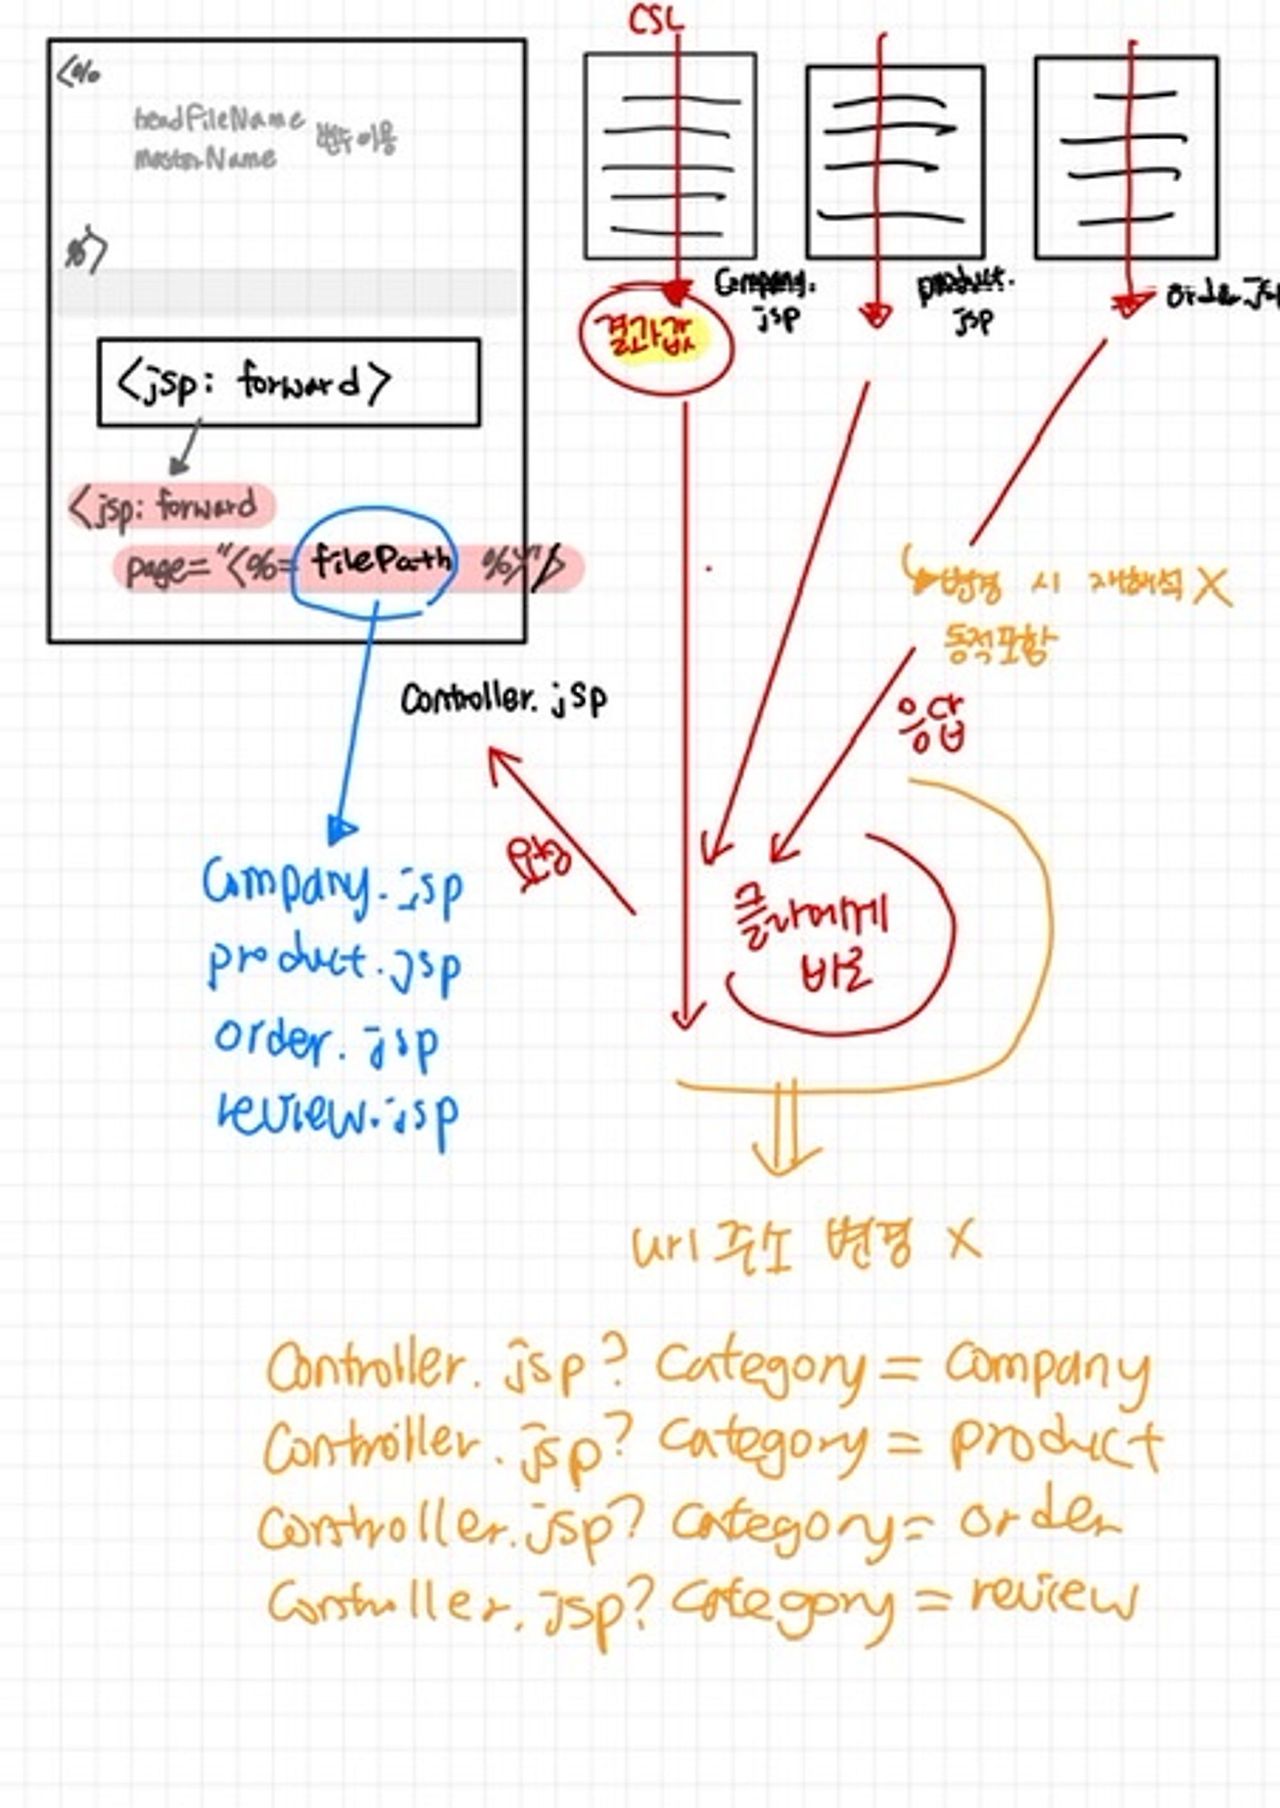 <%
headFileName
masterName
변수 이용
%>
<jsp: forward>
<jsp: forward
page="<%= filePath %>"/>
Controller. jsp
Company. jsp
product. jsp
order. jsp
review. jsp
CSL
결과값
Company.
jsp
product.
jsp
order.jsp
변경 시 재해석 X
동적포함
응답
요청
클라에게
바로
url 주소 변경 X
Controller. jsp? Category = Company
Controller. jsp? Category = product
Controller. jsp? Category = order
Controller. jsp? Category = review